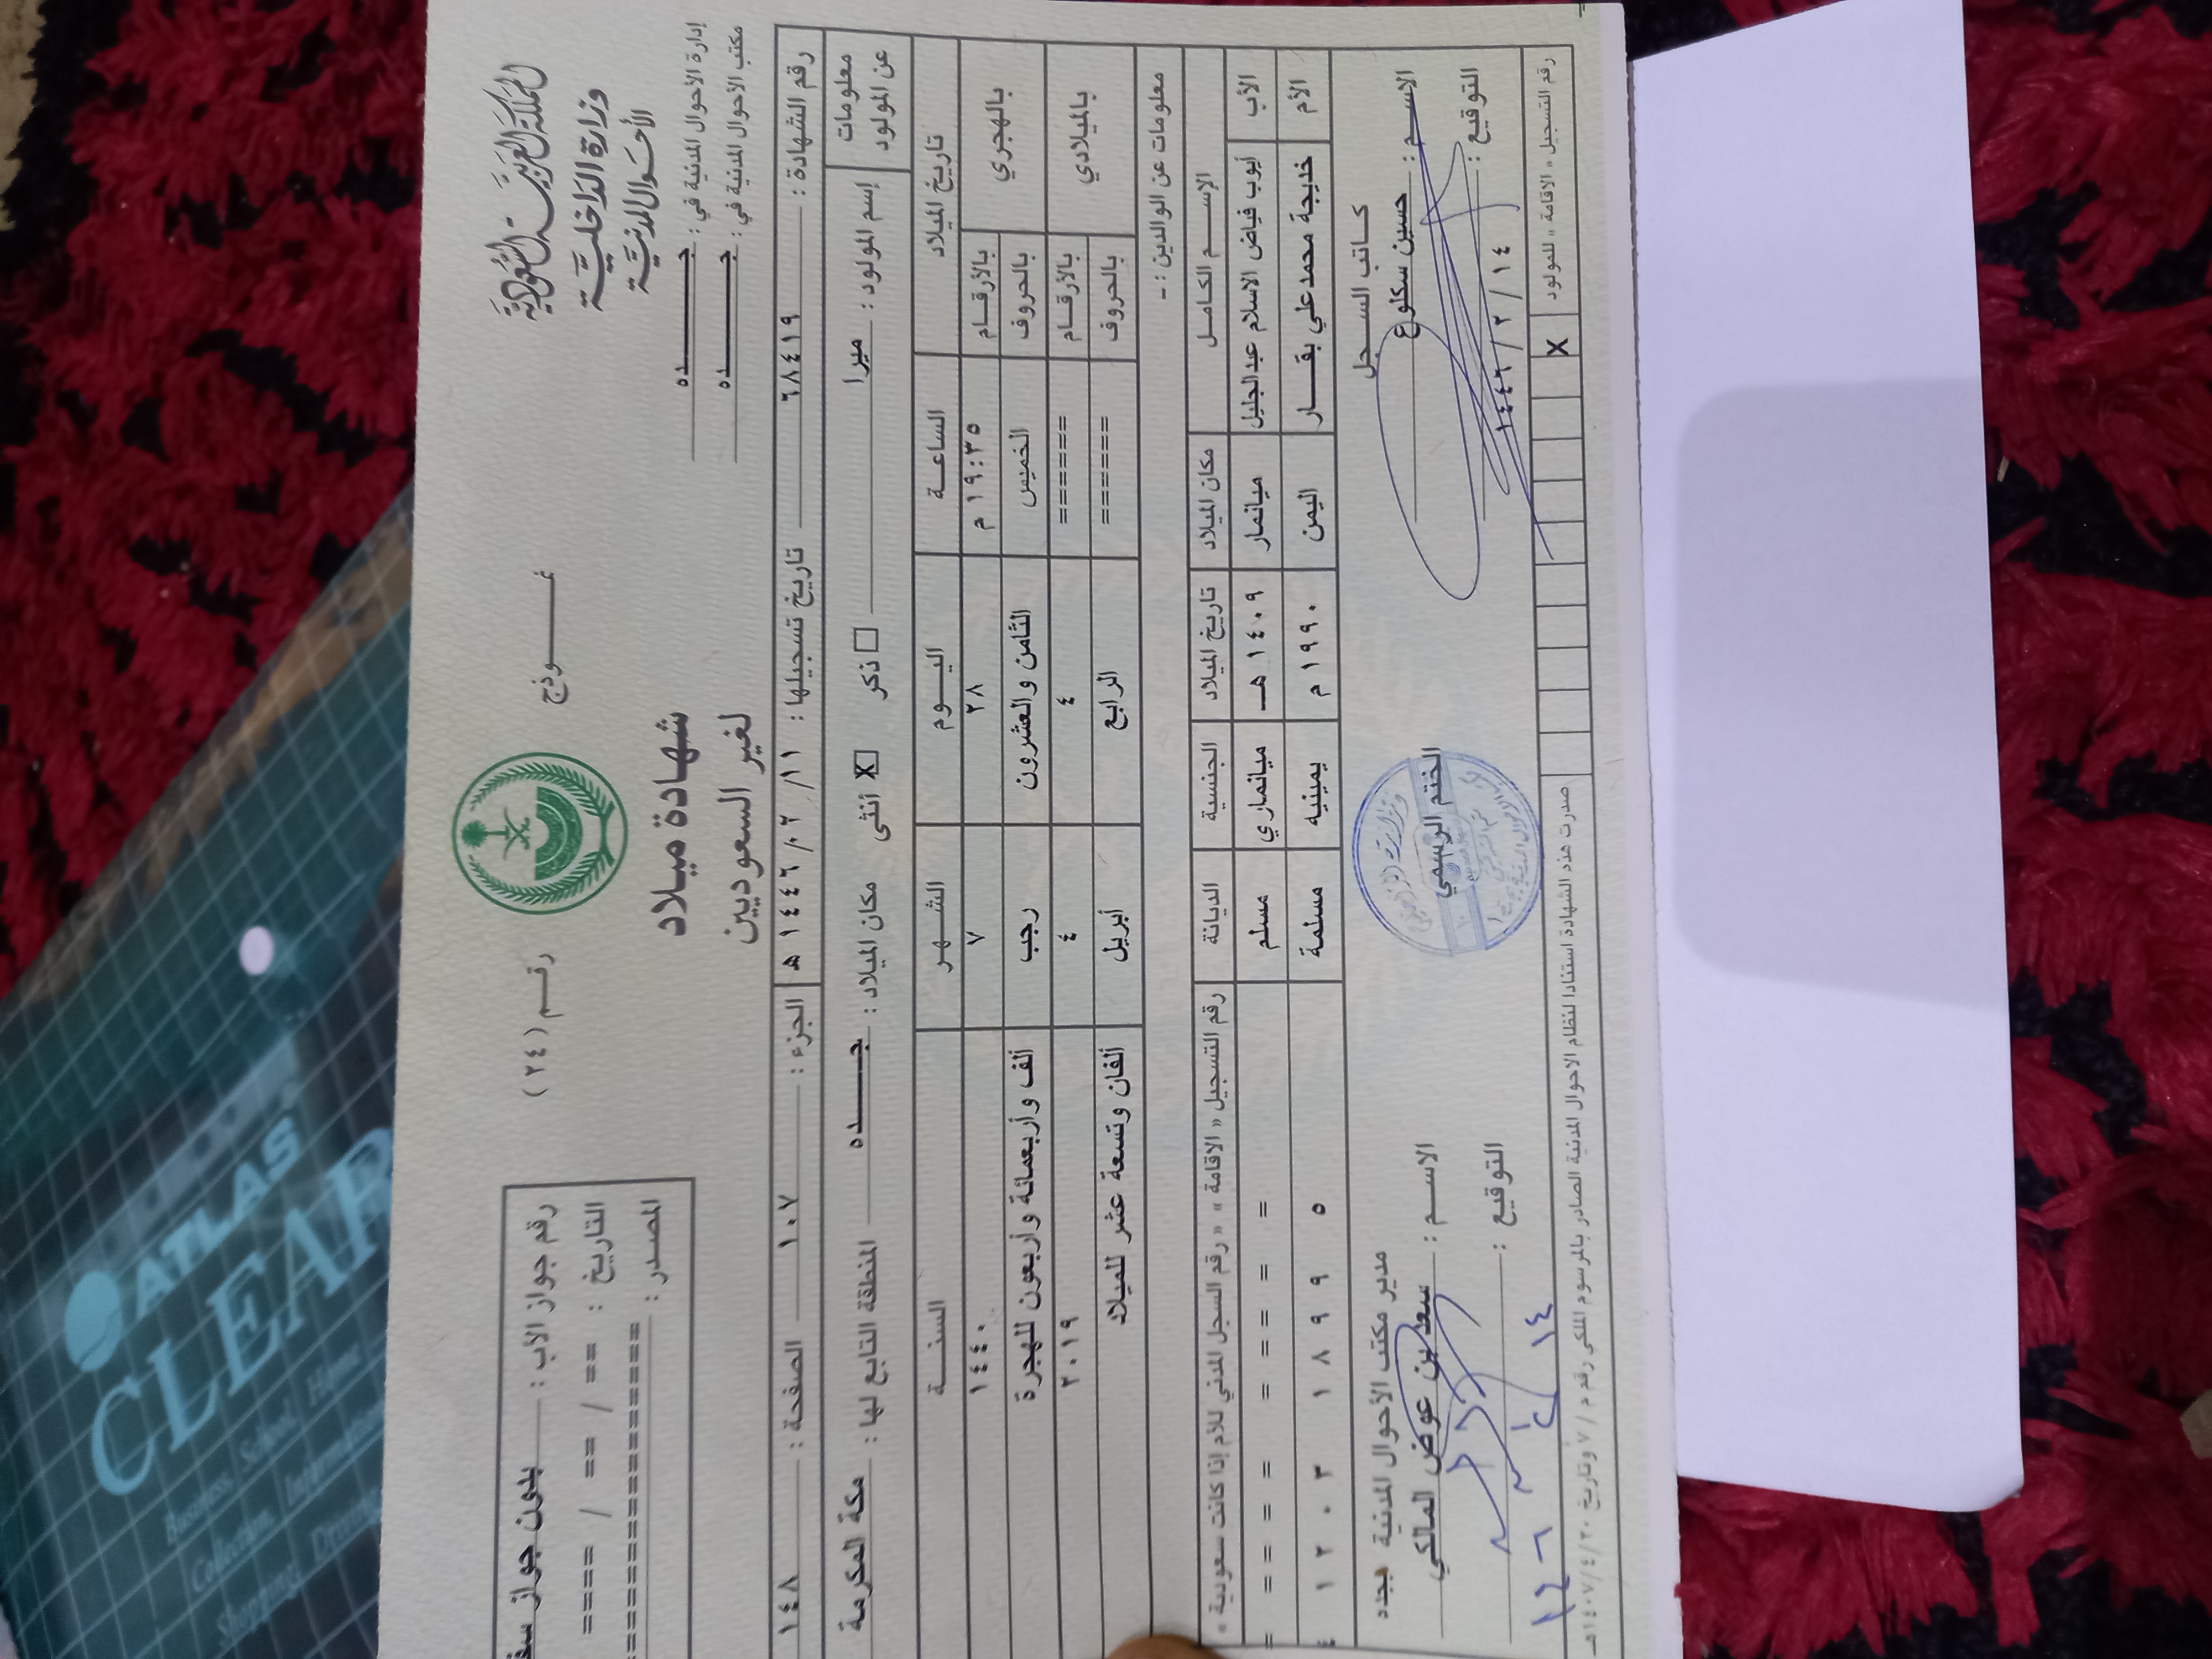 المملكة العربية السعودية
وزارة الداخلية
الأحوال المدنية
إدارة الأحوال المدنية في : جــــده
مكتب الأحوال المدنية في : جــــده
نمــــوذج
رقـم ( ٢٤ )
شهادة ميلاد
لغير السعوديين
رقم جواز الأب : بدون جواز
التاريخ : == / == / ====
المصدر : ==================
رقم الشهادة : ٦٨٤١٩ تاريخ تسجيلها : ١١ / ٠٢ / ١٤٤٦ هـ الجزء : ١٠٧ الصفحة : ١٤٨
معلومات عن المولود إسم المولود : ميرا ذكر أنثى X مكان الميلاد : جــــده المنطقة التابع لها : مكة المكرمة
تاريخ الميلاد الساعـة اليـــوم الشـهـر السنــة
بالهجري بالأرقـام ١٩:٣٥ م ٢٨ ٧ ١٤٤٠
بالحروف الخميس الثامن والعشرون رجب ألف وأربعمائة وأربعون للهجرة
بالميلادي بالأرقـام ====== ٤ ٤ ٢٠١٩
بالحروف ====== الرابع أبريل ألفان وتسعة عشر للميلاد
معلومات عن الوالدين : -
الإســـم الكامـل مكان الميلاد تاريخ الميلاد الجنسية الديانة رقم التسجيل « الاقامة » « رقم السجل المدني للأم إذا كانت سعودية »
الأب أيوب فياض الاسلام عبدالجليل ميانمار ١٤٠٩ هـ ميانماري مسلم = = = = = = = = =
الأم خديجة محمدعلي بقـــار اليمن ١٩٩٠ م يمينيه مسلمة ٥ ٩ ٩ ٨ ١ ٣ ٠ ٢ ١
كـاتب السـجل
الاســم : حسين سكلوع
التوقيع :
١٤٤٦ / ٢ / ١٤
الختم الرسمي
مدير مكتب الأحوال المدنية بجده
الاسـم : سعد بن عوض المالكي
التوقيع :
رقم التسجيل « الاقامة » للمولود X
صدرت هذه الشهادة استنادا لنظام الاحوال المدنية الصادر بالمرسوم الملكي رقم م / ٧ وتاريخ ١٤٠٧/٤/٢٠هـ
ATLAS
CLEAR
Business, School, Home
Collection, Information
Shopping,